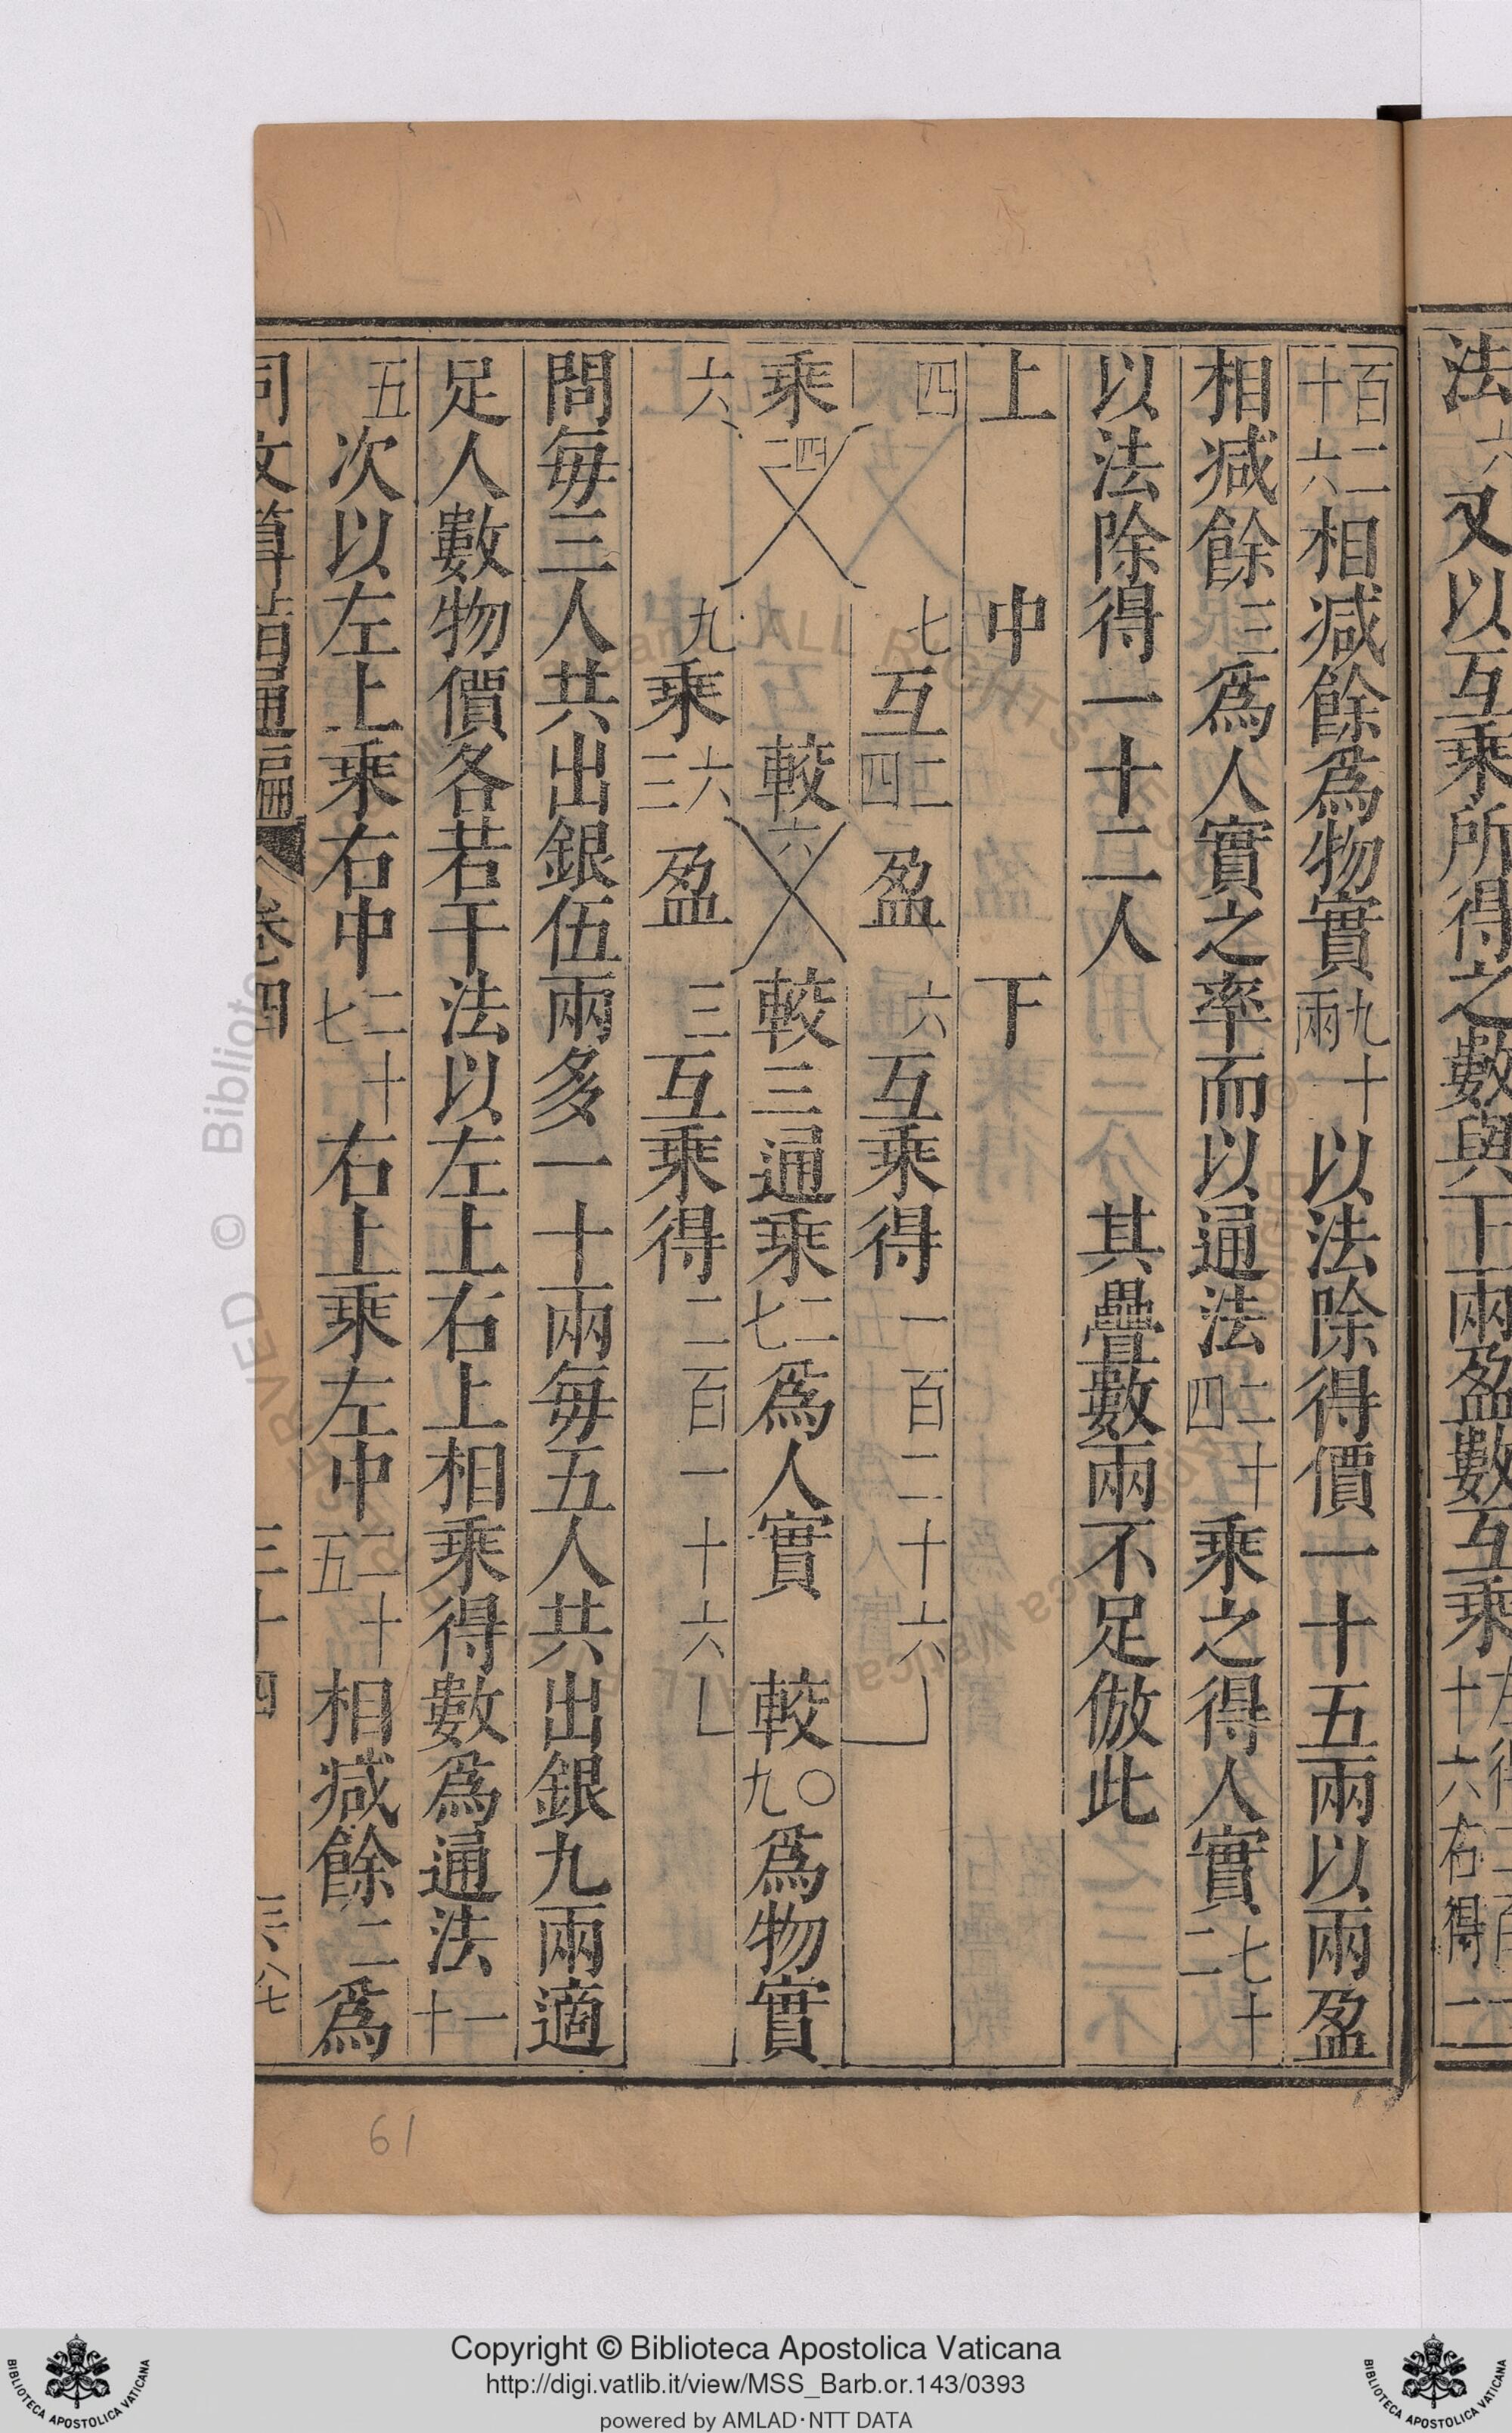 法六又以互乘所得之數與下兩盈數互乘
十六右得一
百二十六相減餘爲物實九十兩以法除得價一十五兩以兩盈
相減餘三爲人實之率而以通法二十四乘之得人實七十二
以法除得一十二人 其疊數兩不足倣此
上 中 下
四 七互二四盈 六互乘得一百二十六
乘二四 較六較三通乘二七爲人實 較〇九爲物實
六 九乘六三盈 三互乘得二百一十六
問每三人共出銀伍兩多一十兩每五人共出銀九兩適
足人數物價各若干法以左上右上相乘得數爲通法一十
五次以左上乘右中二十七右上乘左中二十五相減餘二爲
同文算指通編 卷四 三十四 三八七
61
Copyright © Biblioteca Apostolica Vaticana
http://digi.vatlib.it/view/MSS_Barb.or.143/0393
powered by AMLAD·NTT DATA
BIBLIOTECA APOSTOLICA VATICANA
BIBLIOTECA APOSTOLICA VATICANA